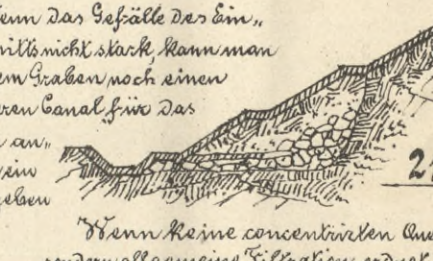 enn das Gefälle des Ein„
nitts nicht stark, kann man
em Graben noch einen
eren Canal für das
an„
ein
eben
21
Wenn keine concentrirten Que
ondern allgemeine Filtration